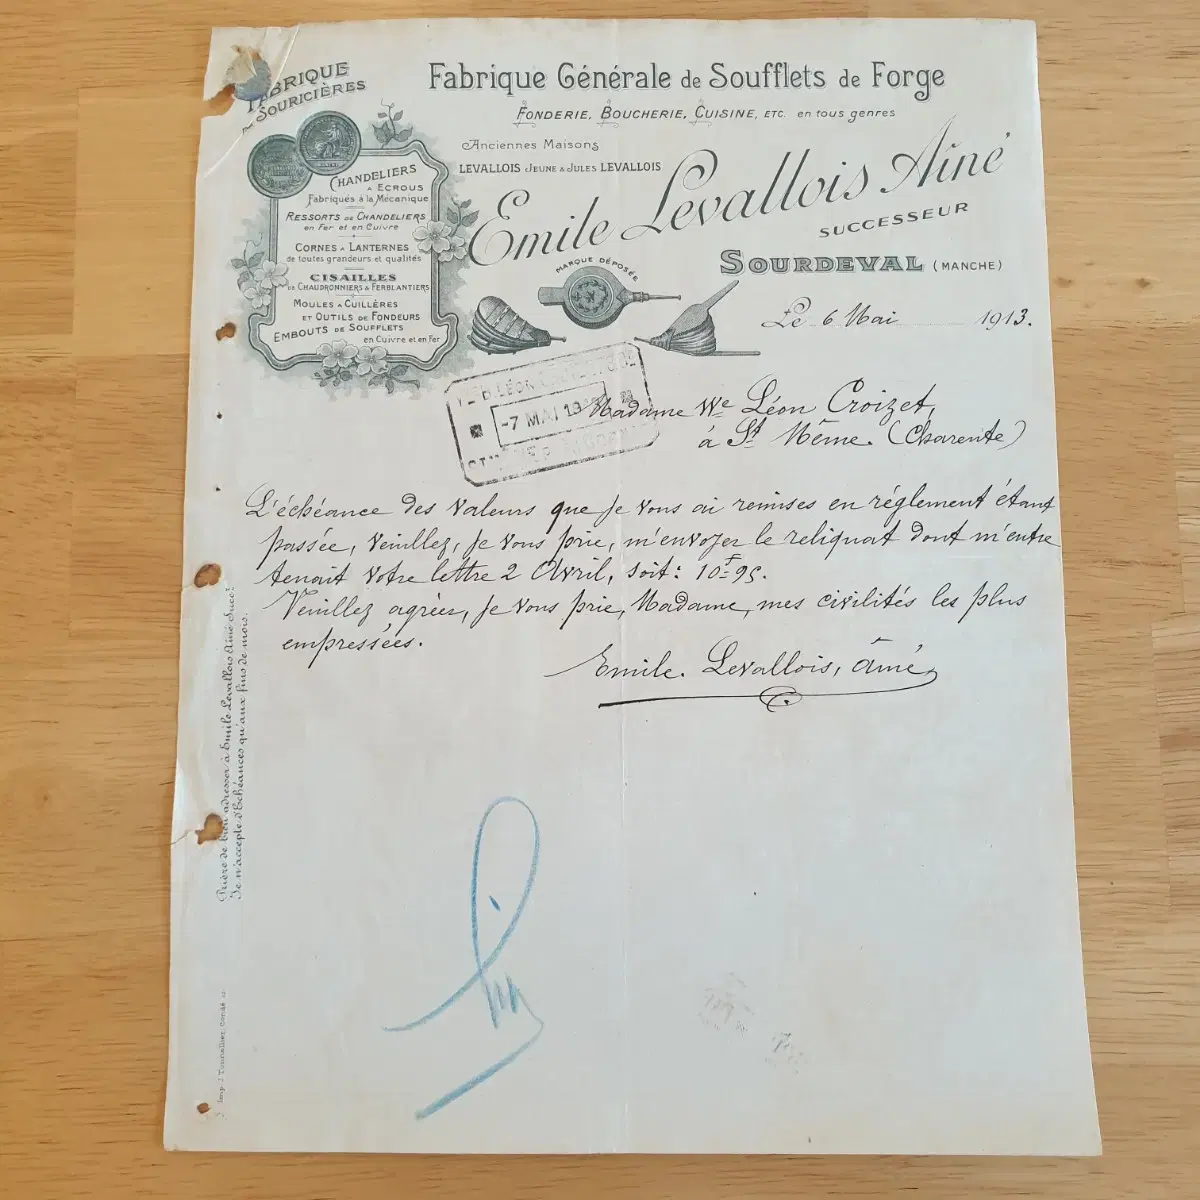 FABRIQUE
SOURICIÈRES
Fabrique Générale de Soufflets de Forge
FONDERIE, BOUCHERIE, CUISINE, ETC. en tous genres
Anciennes Maisons
LEVALLOIS JEUNE & JULES LEVALLOIS
Emile Levallois Aîné
SUCCESSEUR
SOURDEVAL (MANCHE)
MARQUE DÉPOSÉE
CHANDELIERS
A ECROUS
Fabriqués à la Mécanique
RESSORTS DE CHANDELIERS
en Fer et en Cuivre
CORNES A LANTERNES
de toutes grandeurs et qualités
CISAILLES
DE CHAUDRONNIERS & FERBLANTIERS
MOULES A CUILLÈRES
ET OUTILS DE FONDEURS
EMBOUTS DE SOUFFLETS
en Cuivre et en Fer
Le 6 Mai 1913.
LÉON
-7 MAI 13
Madame Wve Léon Croizet,
à St Même. (Charente)
L'échéance des valeurs que je vous ai remises en réglement étant
passée, veuillez, je vous prie, m'envoyer le reliquat dont m'entre
tenait votre lettre 2 Avril, soit: 10f95.
Veuillez agréer, je vous prie, Madame, mes civilités les plus
empressées.
Emile. Levallois, âiné
Prière de bien adresser à Emile Levallois Aîné Succr
Je n'accepte d'Echéances qu'aux fins de mois.
Imp. J. Tonnellier, Condé